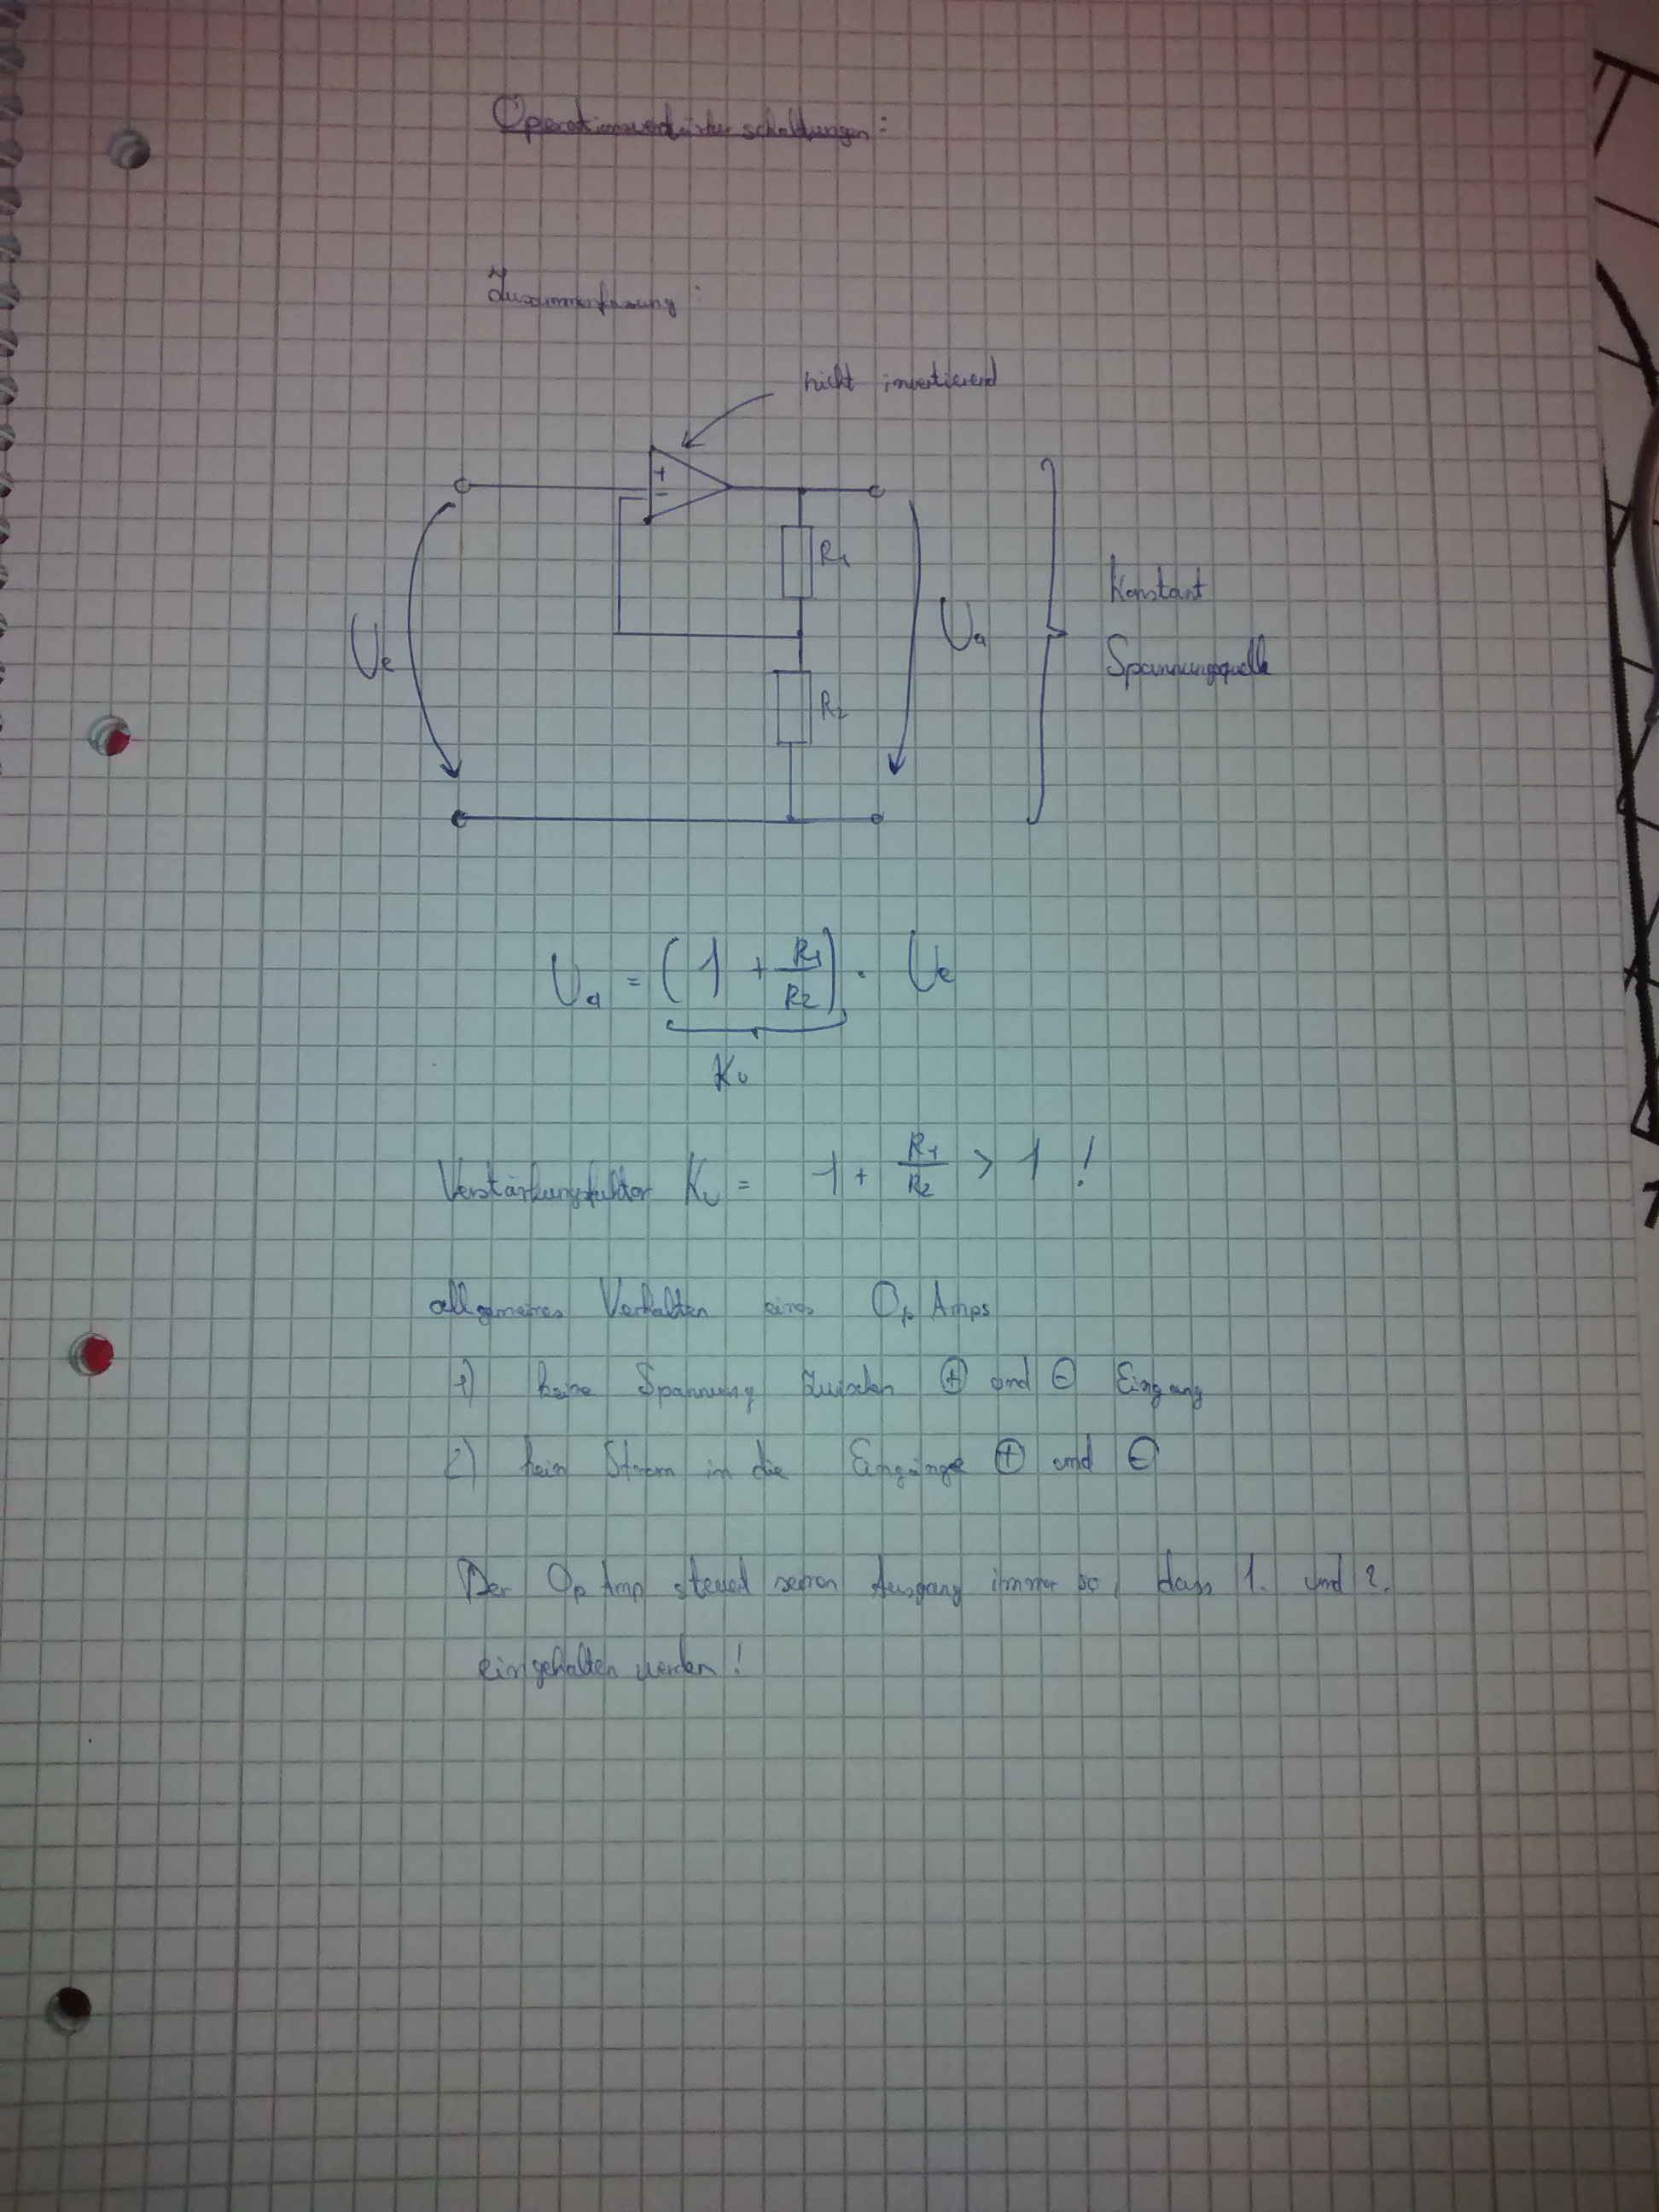 Operationsverstärkerschaltungen:
Zusammenfassung:
nicht invertierend
+
−
R1
Ue
Ua
Konstant
Spannungsquelle
R2
Ua = (1 + R1/R2) · Ue
Ku
Verstärkungsfaktor Ku = 1 + R1/R2 > 1 !
allgemeines Verhalten eines Op Amps
1) keine Spannung zwischen ⊕ und ⊖ Eingang
2) kein Strom in die Eingänge ⊕ und ⊖
Der Op Amp steuert seinen Ausgang immer so, dass 1. und 2.
eingehalten werden!